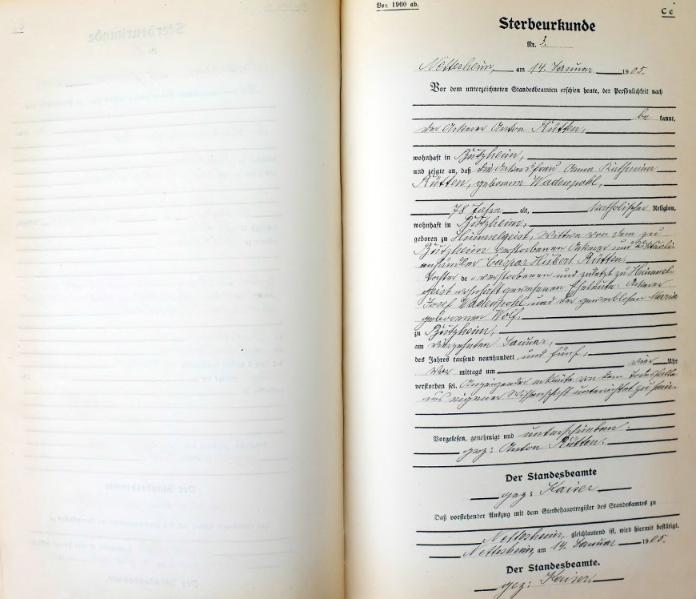 Vor 1900 ab.
C c
Sterbeurkunde
Nr. 3.
Nettesheim, am 14. Januar 1905.
Vor dem unterzeichneten Standesbeamten erschien heute, der Persönlichkeit nach
be kannt,
der Ackerer Anton Rütten,
wohnhaft in Butzheim,
und zeigte an, daß Frau Anna Katharina
Rütten, geborene Wadenpohl,
78 Jahre alt, katholischer Religion,
wohnhaft in Butzheim,
geboren zu Himmelgeist, Witwe von dem zu
Butzheim verstorbenen Ackerer und
Caspar Hubert Rütten,
Tochter der verstorbenen und zuletzt zu Himmel-
geist wohnhaft gewesenen Eheleute Ackerer
Josef Wadenpohl und der gewerblosen Maria
geborenen Wolf,
zu Butzheim,
am Januar,
des Jahres tausend neunhundert und fünf,
Vor mittags um vier Uhr
verstorben sei. Anzeigender erklärte von dem Sterbefalle
aus eigener Wissenschaft unterrichtet zu sein.
Vorgelesen, genehmigt und unterschrieben
gez: Anton Rütten.
Der Standesbeamte
gez: Kaiser
Daß vorstehender Auszug mit dem Sterbehauptregister des Standesamtes zu
Nettesheim gleichlautend ist, wird hiermit bestätigt.
Nettesheim, am 14. Januar 1905.
Der Standesbeamte.
gez: Kaiser